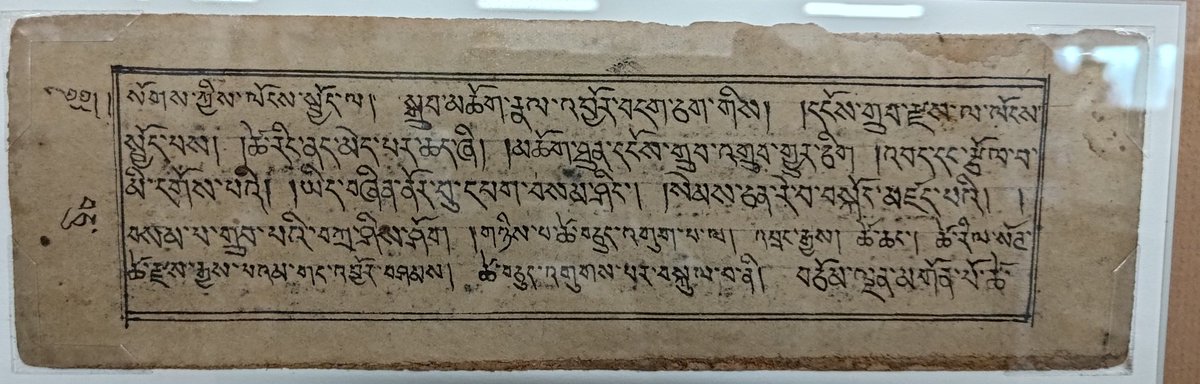 སོགས་ཀྱིས་ལོངས་སྤྱོད་ལ། སྒྲུབ་མཆོག་རྣལ་འབྱོར་བདག་ཅག་གིས། །དངོས་གྲུབ་རྫས་ལ་ལོངས་
སྤྱོད་པས། །ཚེ་རིང་ནད་མེད་པར་ཆང་ཞི། །མཆོག་ཐུན་དངོས་གྲུབ་འགྲུབ་གྱུར་ཅིག །འབད་དང་རྩོལ་བ་
མི་དགོས་པའི། །ཡིད་བཞིན་ནོར་བུ་དཔག་བསམ་ཤིང་། །སེམས་ཅན་རེ་བ་བསྐོང་མཛད་པའི། །
བསམ་པ་གྲུབ་པའི་བཀྲ་ཤིས་ཤོག །གཉིས་པ་ཚེ་བཅུད་འགུག་པ་ལ། འཕྲང་རྒྱས། ཚེ་ཆང་། ཚེ་རིལ་སོཊ་
ཚེ་རྫས་རྒྱས་པའམ་གང་འབྱོར་བཤམས། ཚེ་བཅུད་འགུགས་པར་བསྐུལ་བ་ནི། བཅོམ་ལྡན་མགོན་པོ་ཚེ་